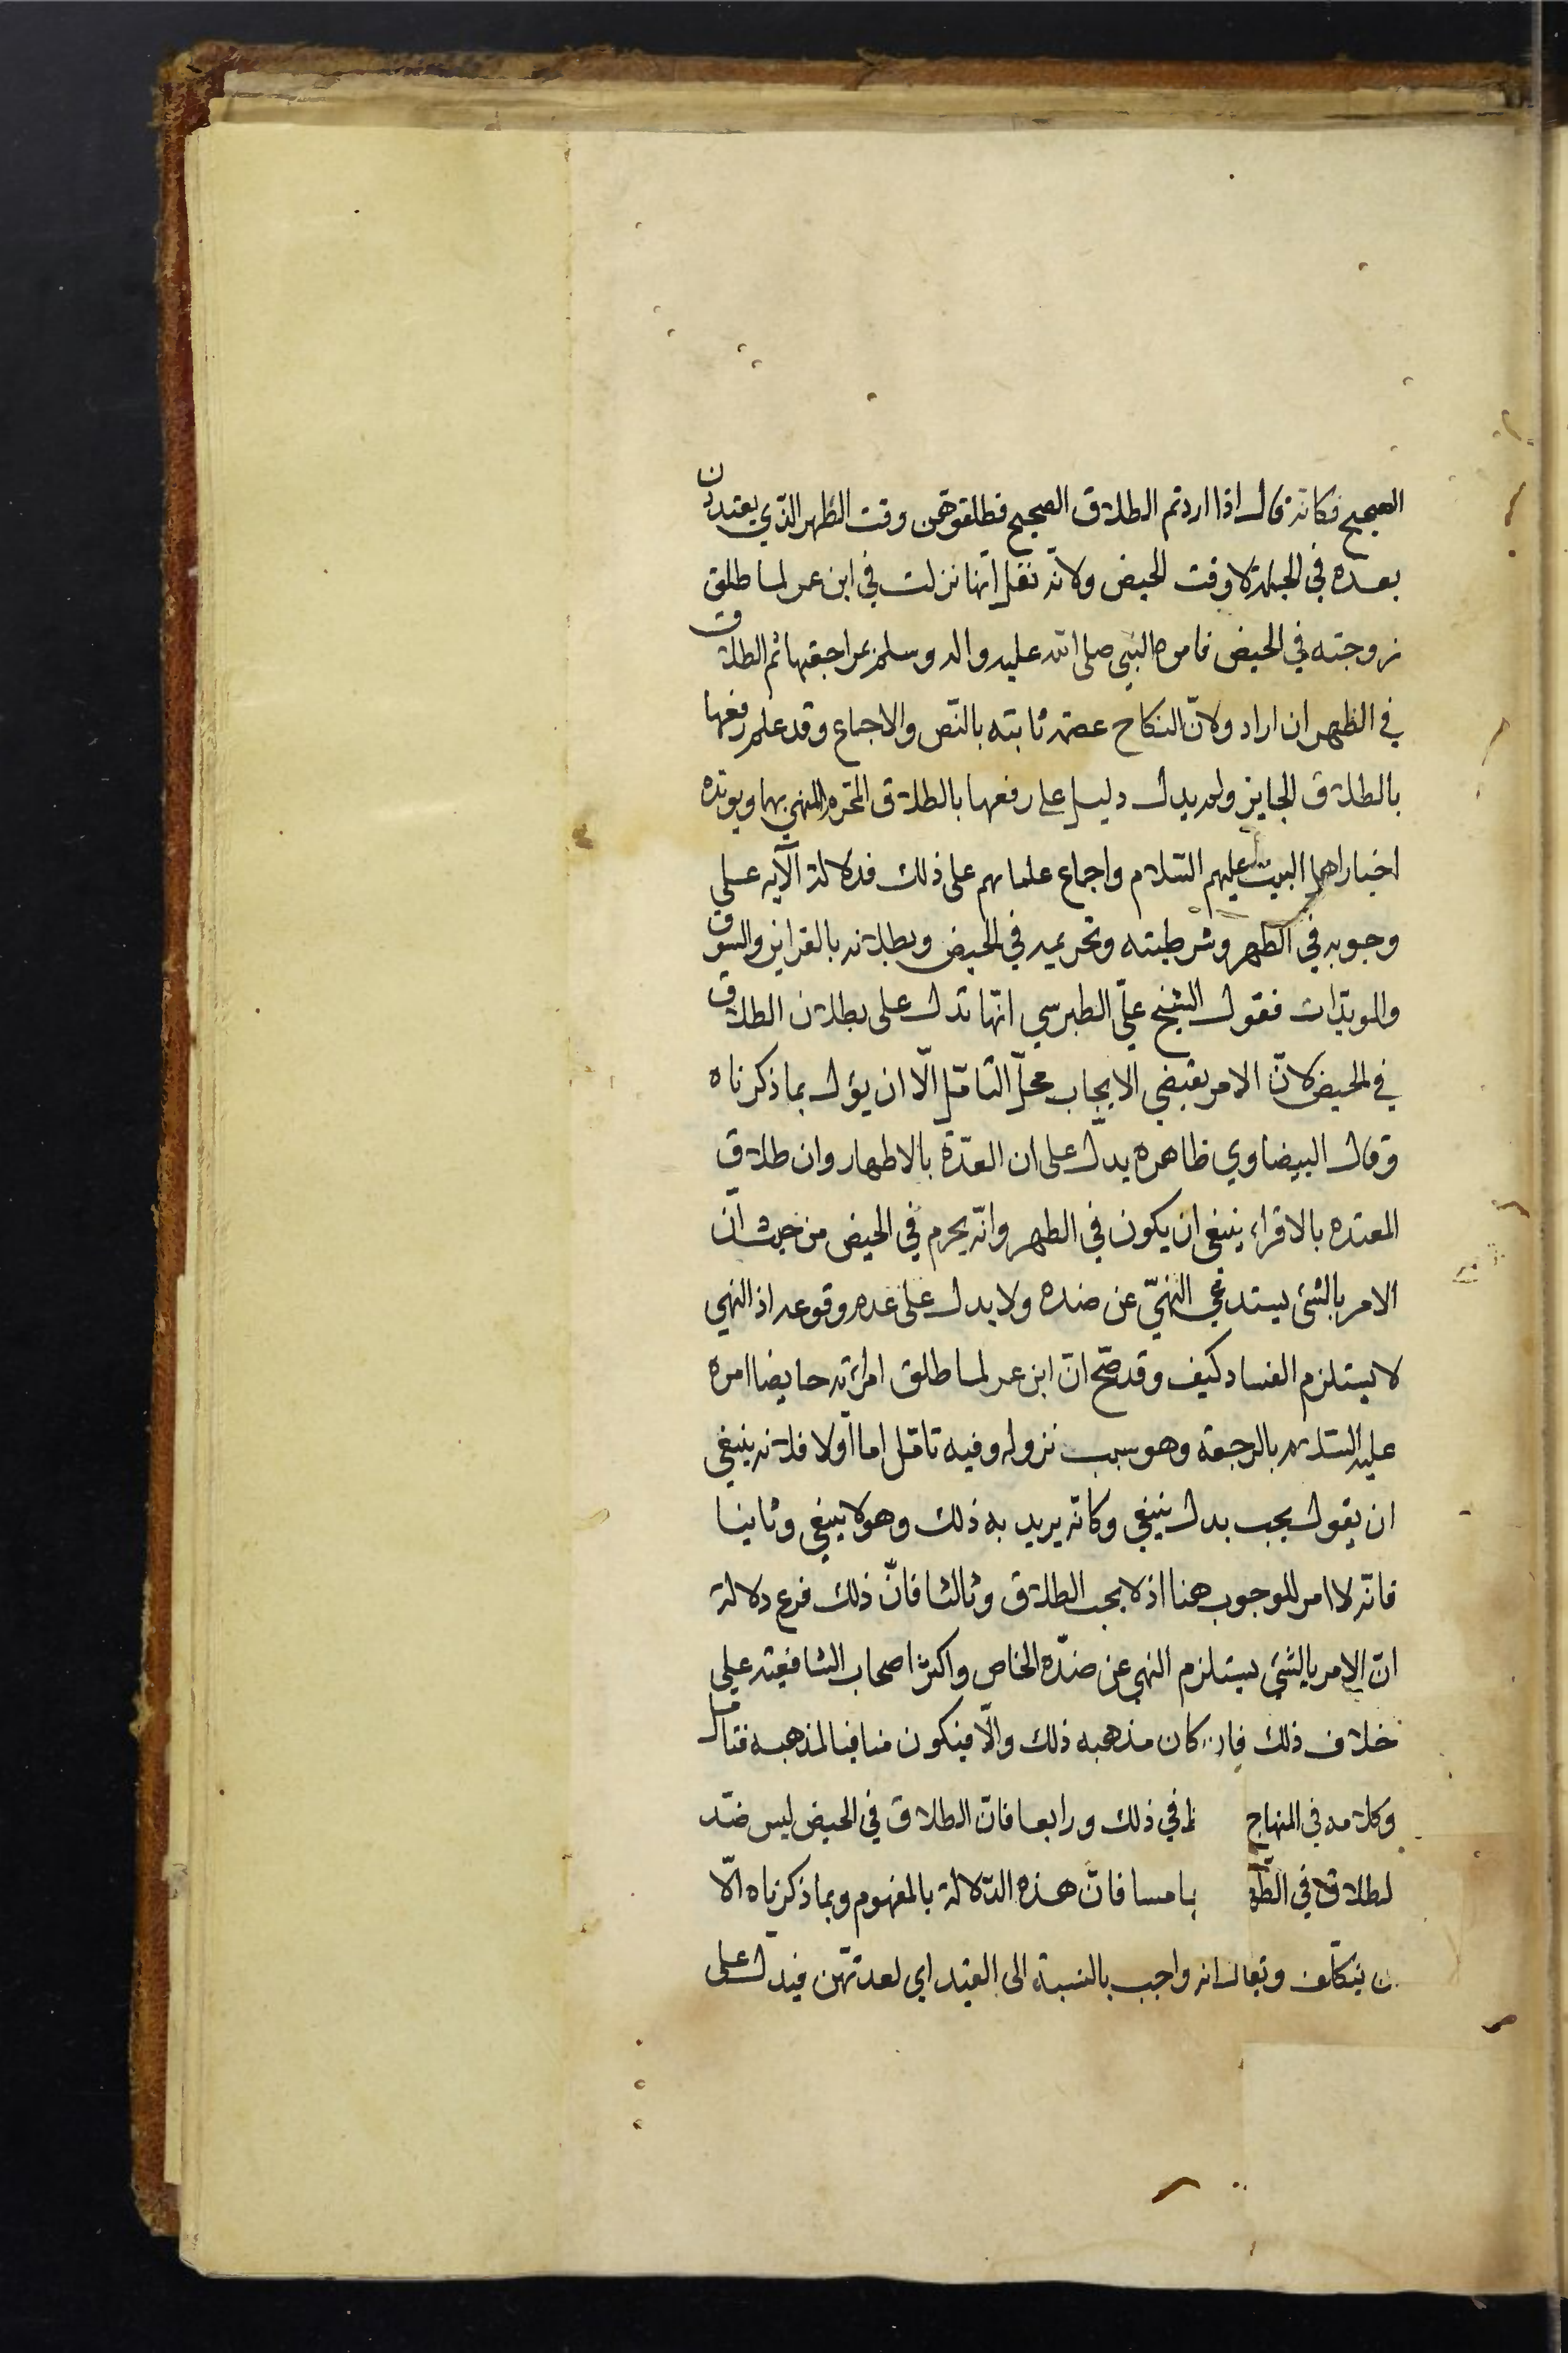 الصحيح فكانه قال اذا اردتم الطلاق الصحيح فطلقوهن وقت الطهر الذي يعتددن
بعده في الجملة لا وقت الحيض ولانه نقل انها نزلت في ابن عمر لما طلق
زوجته في الحيض فامره النبي صلى الله عليه واله وسلم بمراجعتها ثم الطلاق
في الطهر ان اراد ولان النكاح عصمة ثابته بالنص والاجماع وقد علم رفعها
بالطلاق الجايز ولم يدل دليل على رفعها بالطلاق المحرم المنهي بها ويويده
اخبار اهل البيت عليهم السلام واجماع علمائهم على ذلك فدلالة الآية على
وجوبه في الطهر وشرطيته وتحريمه في الحيض وبطلانه بالقراين والسوق
والمويدات فقول الشيخ علي الطبرسي انها تدل على بطلان الطلاق
في الحيض لان الامر يقتضي الايجاب محل التامل الا ان يؤل بما ذكرناه
وقال البيضاوي ظاهره يدل على ان العدة بالاطهار وان طلاق
المعتده بالاقراء ينبغي ان يكون في الطهر وانه يحرم في الحيض من حيث ان
الامر بالشئ يستدعي النهي عن ضده ولا يدل على عدم وقوعه اذ النهي
لا يستلزم الفساد كيف وقد صح ان ابن عمر لما طلق امرأته حايضا امره
عليه السلام بالرجعة وهو سبب نزوله وفيه تامل اما اولا فلانه ينبغي
ان يقول يجب بدل ينبغي وكانه يريد به ذلك وهو لا ينبغي وثانيا
فانه لا امر للوجوب هنا اذ لا يجب الطلاق وثالثا فان ذلك فرع دلالة
ان الامر بالشئ يستلزم النهي عن ضده الخاص واكثر اصحاب الشافعية على
خلاف ذلك فان كان مذهبه ذلك والا فيكون منافيا لمذهبه فتامل
وكلامه في المنهاج في ذلك ورابعا فان الطلاق في الحيض ليس ضد
لطلاق في الطهر امسا فان هذه الدلالة بالمفهوم وبما ذكرناه الا
ن يتكلف ويقال انه واجب بالنسبة الى القيد اي لعدتهن فيدل على